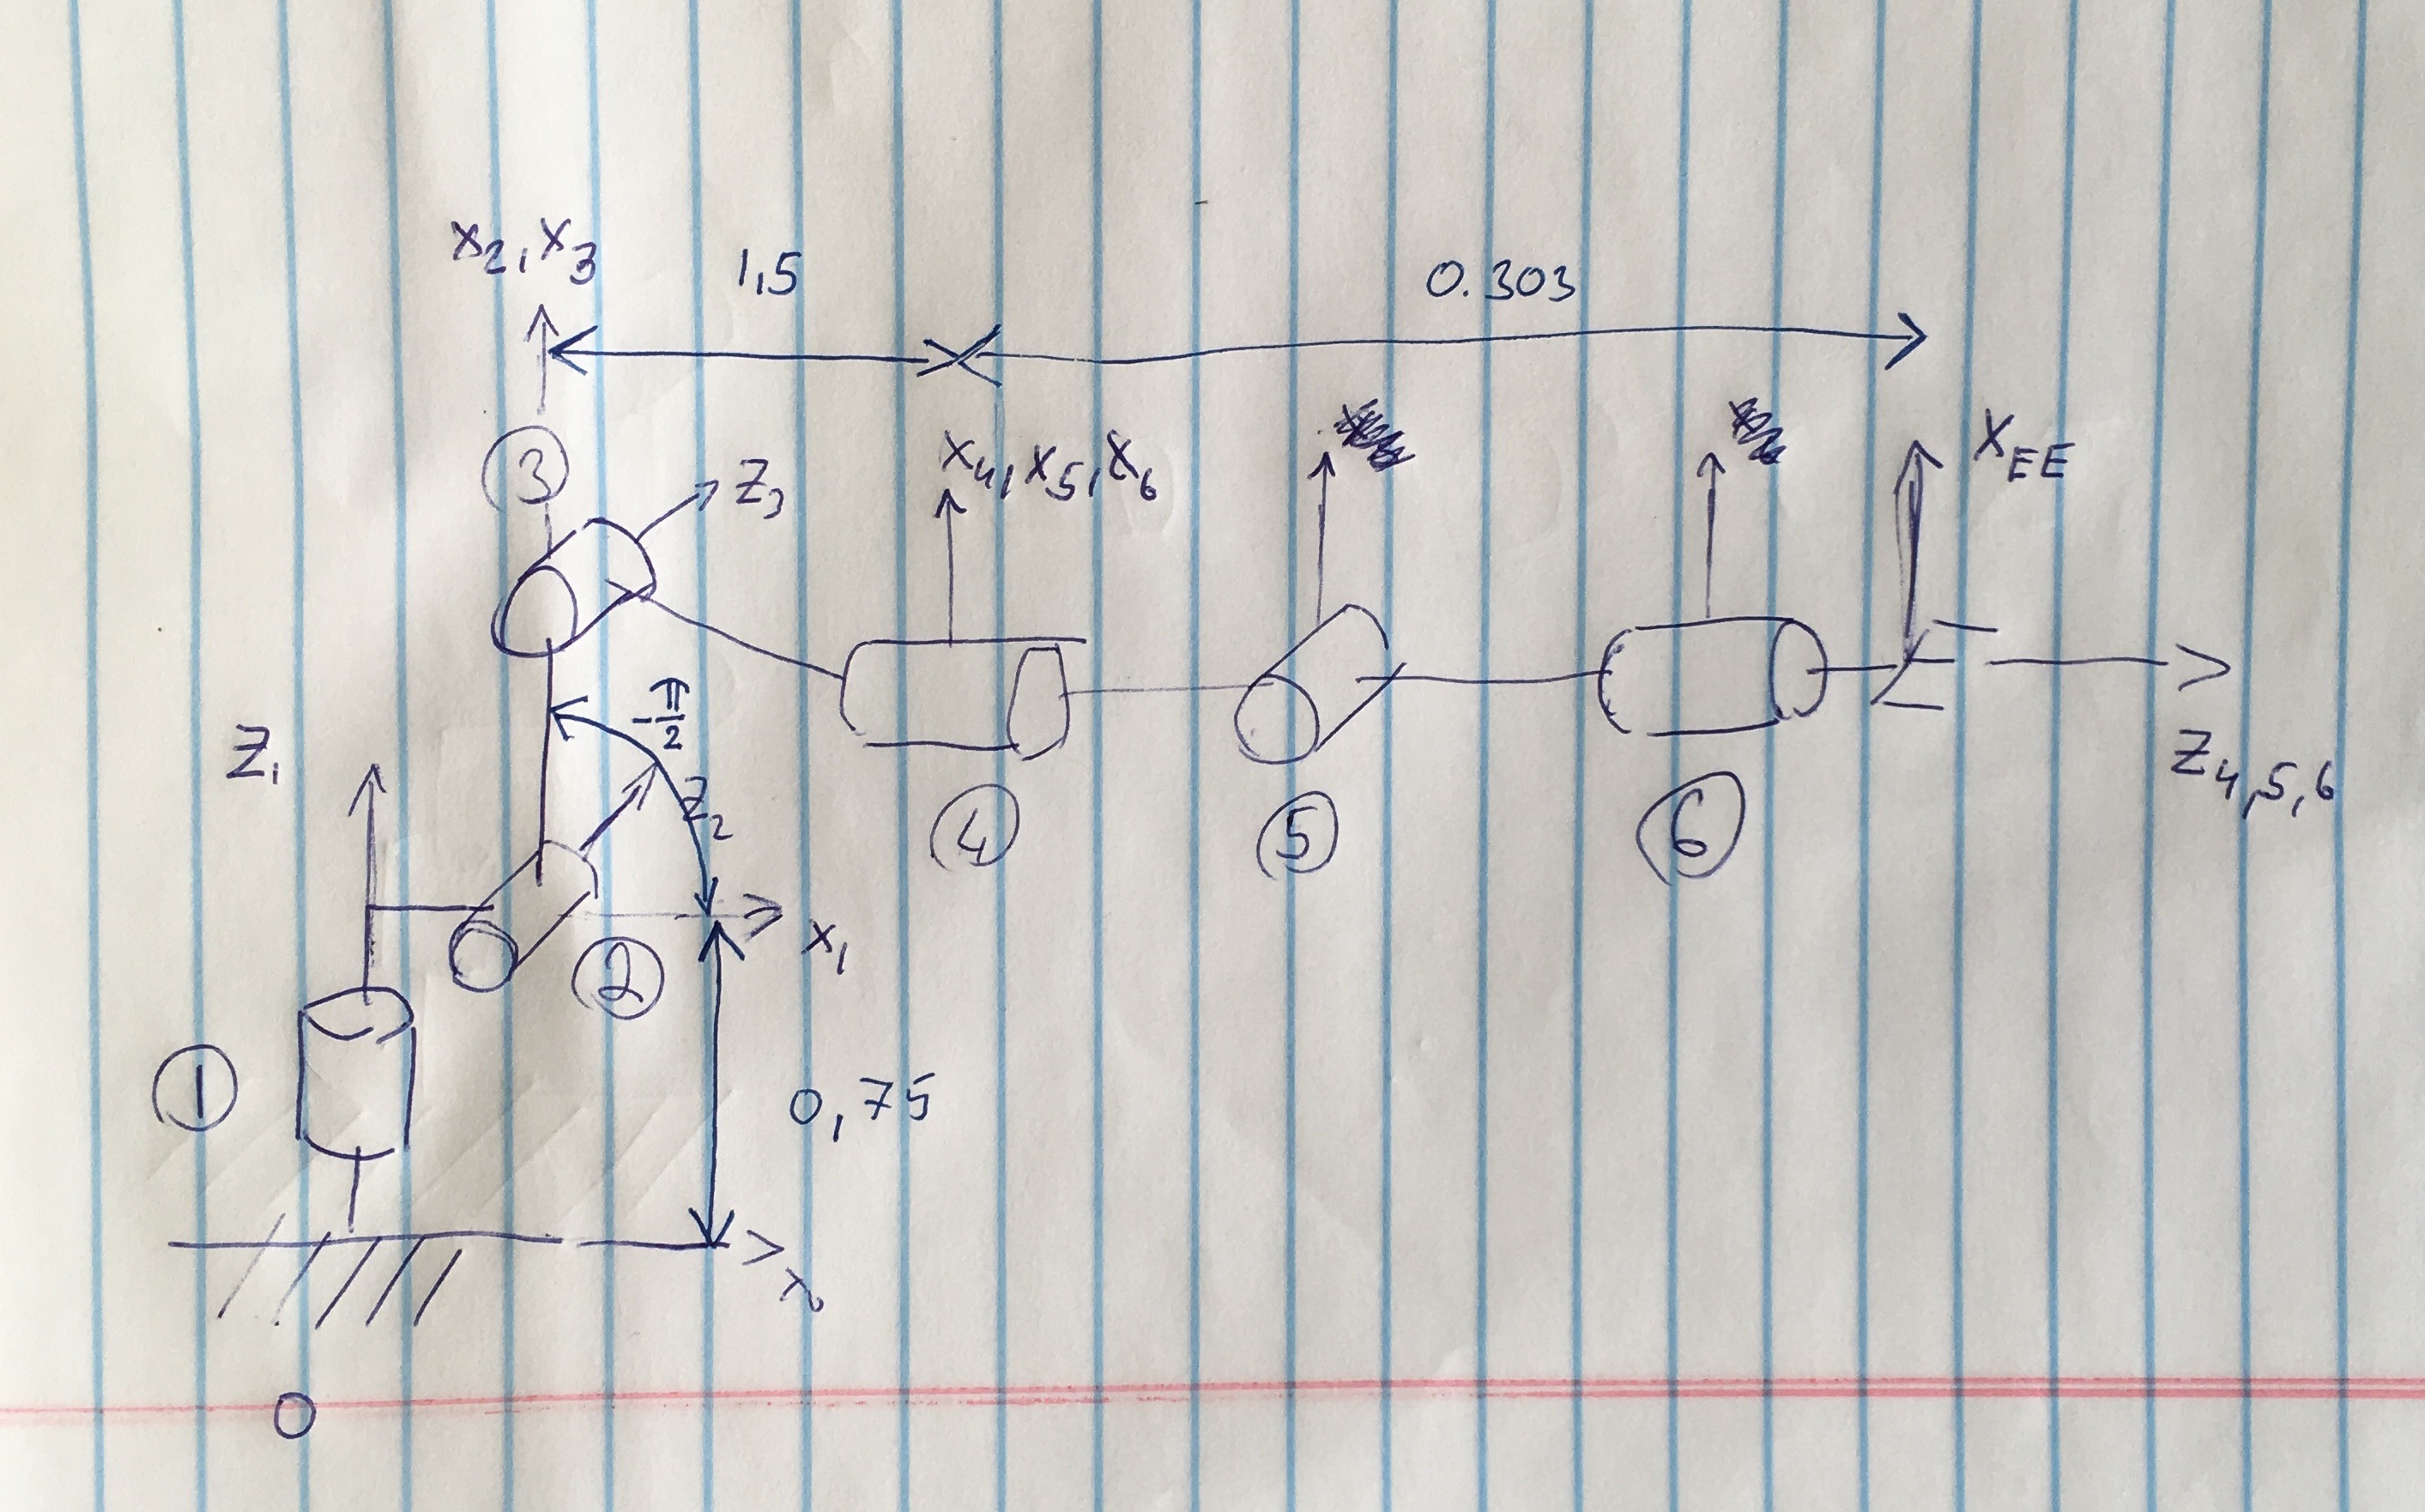 x2, x3
1,5
0.303
3
z3
x4, x5, x6
xEE
-π/2
z1
z2
z4,5,6
4
5
6
x1
2
1
0,75
x0
0